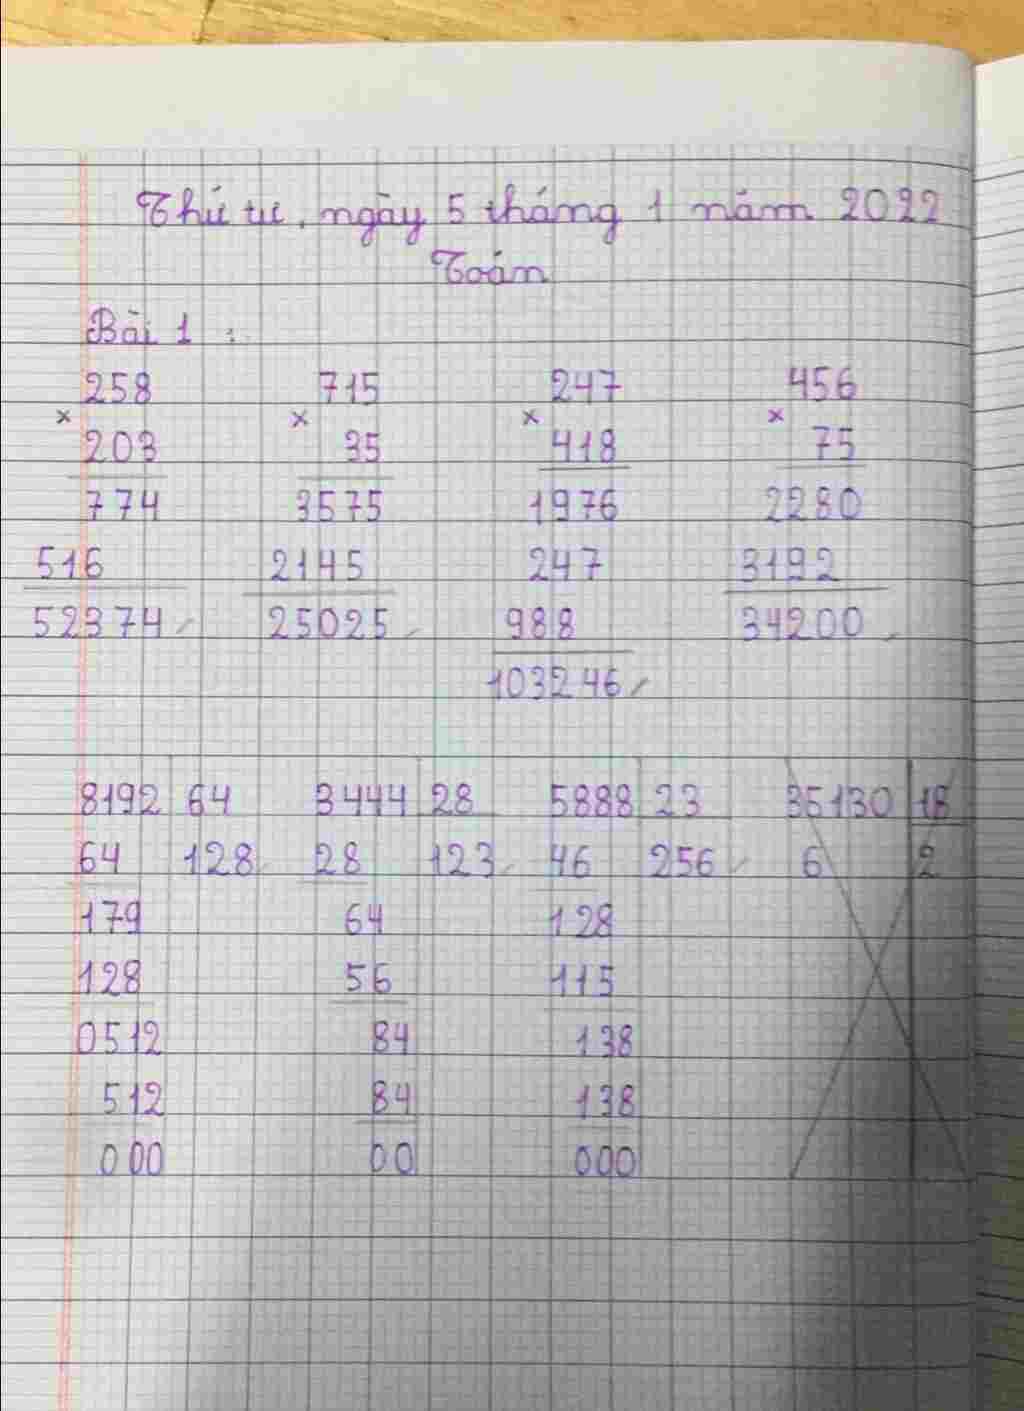 Thứ tư, ngày 5 tháng 1 năm 2022
Toán
Bài 1 :
258 715 247 456
× × × ×
203 35 418 75
774 3575 1976 2280
516 2145 247 3192
52374 25025 988 34200
103246
8192 64 3444 28 5888 23 35130 18
64 128 28 123 46 256 6 2
179 64 128
128 56 115
0512 84 138
512 84 138
000 00 000